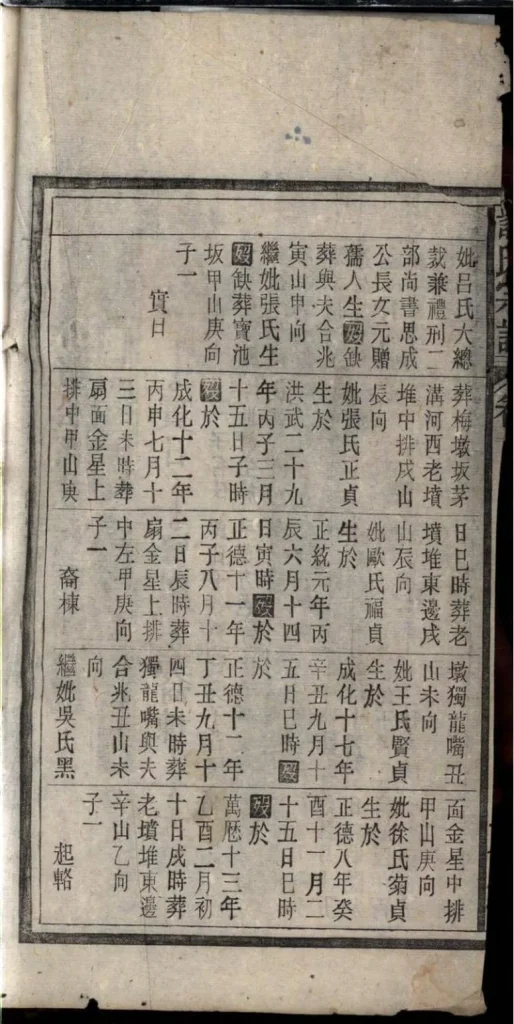 妣呂氏大總
裁兼禮刑二
部尚書思成
公長女元贈
孺人生殁缺
葬與夫合兆
寅山申向
繼妣張氏生
殁缺葬寶池
坂甲山庚向
子一
實日
葬梅墩坂茅
溝河西老墳
堆中排戌山
辰向
妣張氏正貞
生於
洪武二十九
年丙子三月
十五日子時
殁於
成化十二年
丙申七月十
三日未時葬
扇面金星上
排中甲山庚
日巳時葬老
墳堆東邊戌
山辰向
妣歐氏福貞
生於
正統元年丙
辰六月十四
日寅時殁於
正德十一年
丙子八月十
二日辰時葬
扇金星上排
中左甲庚向
子一
裔棟
墩獨龍嘴丑
山未向
妣王氏賢貞
生於
成化十七年
辛丑九月十
五日巳時殁
於
正德十二年
丁丑九月十
四日未時葬
獨龍嘴與夫
合兆丑山未
向
繼妣吳氏黑
面金星中排
甲山庚向
妣徐氏菊貞
生於
正德八年癸
酉十一月二
十五日巳時
殁於
萬曆十三年
乙酉二月初
十日戌時葬
老墳堆東邊
辛山乙向
子一
起輅